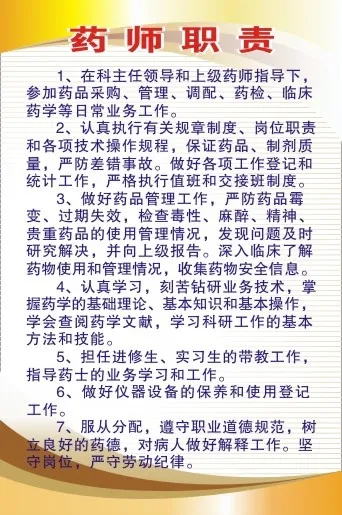 药师职责
1、在科主任领导和上级药师指导下，
参加药品采购、管理、调配、药检、临床
药学等日常业务工作。
2、认真执行有关规章制度、岗位职责
和各项技术操作规程，保证药品、制剂质
量，严防差错事故。做好各项工作登记和
统计工作，严格执行值班和交接班制度。
3、做好药品管理工作，严防药品霉
变、过期失效，检查毒性、麻醉、精神、
贵重药品的使用管理情况，发现问题及时
研究解决，并向上级报告。深入临床了解
药物使用和管理情况，收集药物安全信息。
4、认真学习，刻苦钻研业务技术，掌
握药学的基础理论、基本知识和基本操作，
学会查阅药学文献，学习科研工作的基本
方法和技能。
5、担任进修生、实习生的带教工作，
指导药士的业务学习和工作。
6、做好仪器设备的保养和使用登记
工作。
7、服从分配，遵守职业道德规范，树
立良好的药德，对病人做好解释工作。坚
守岗位，严守劳动纪律。